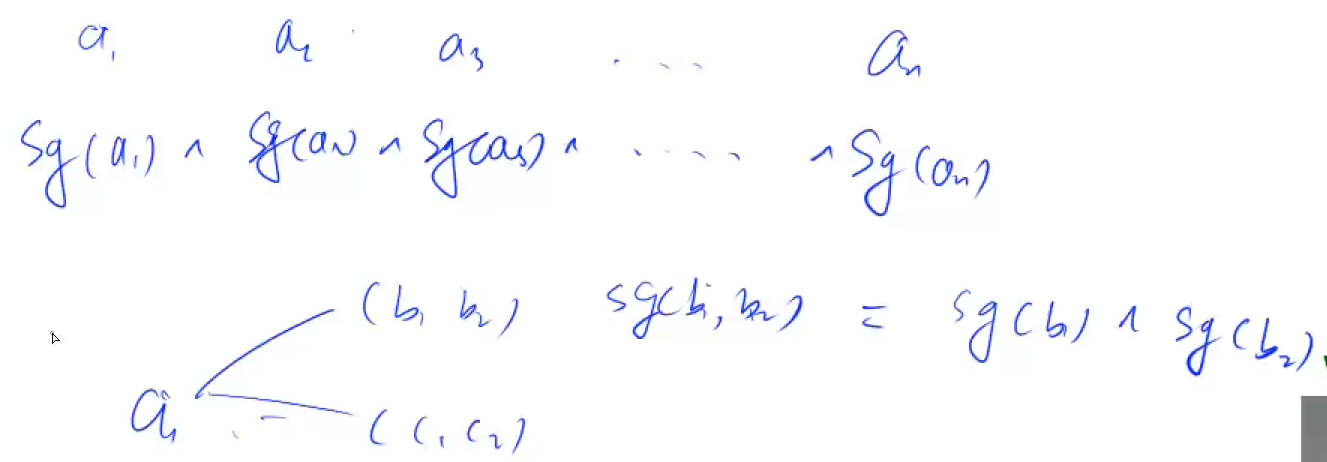 a₁ a₂ a₃ ..... aₙ
Sg(a₁) ^ Sg(a₂) ^ Sg(a₃) ^ ..... ^ Sg(aₙ)
(b₁ b₂) sg(b₁, b₂) = sg(b₁) ^ sg(b₂)
a₁ .. (c₁ c₂)